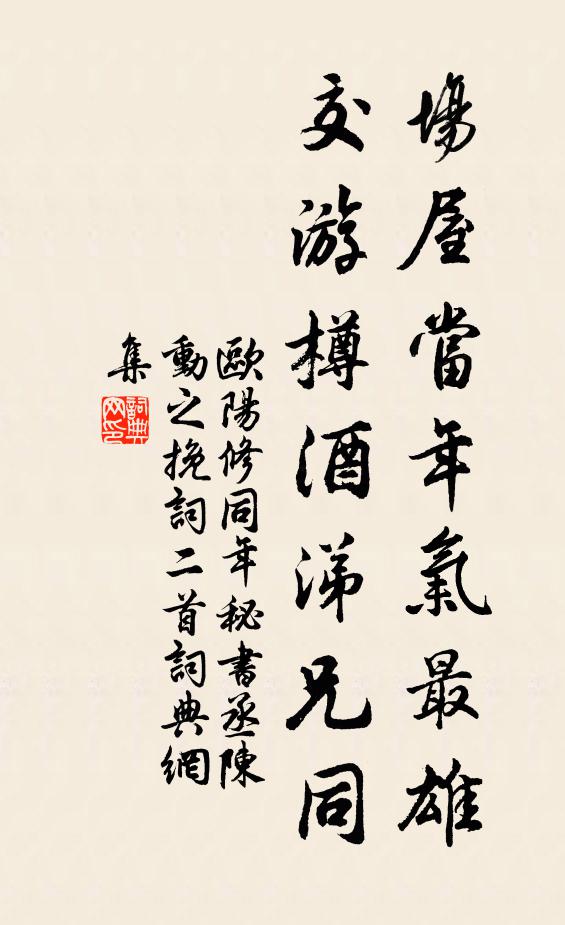 場屋當年氣最雄
交游樽酒涕兄同
歐陽修同年秘書丞陳
動之挽詞二首詞典網
集
詞典
网印